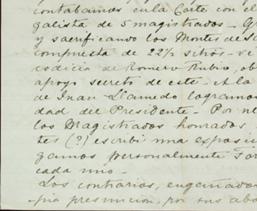 contabamos en la Corte con el
galista de 5 magistrados -
y sacrificando los Montes de
compuesta de 22½ sitios - se
codicia de Romero Rubio, ob
apoyo secreto de este - A la
de Juan Llamedo logramos
dad del Presidente - Por
los Magistrados honrados
tes (?) escribí una exposic
gamos personalmente
cada uno -
Los contrarios, engeinados
pio presuncion, por sus abo